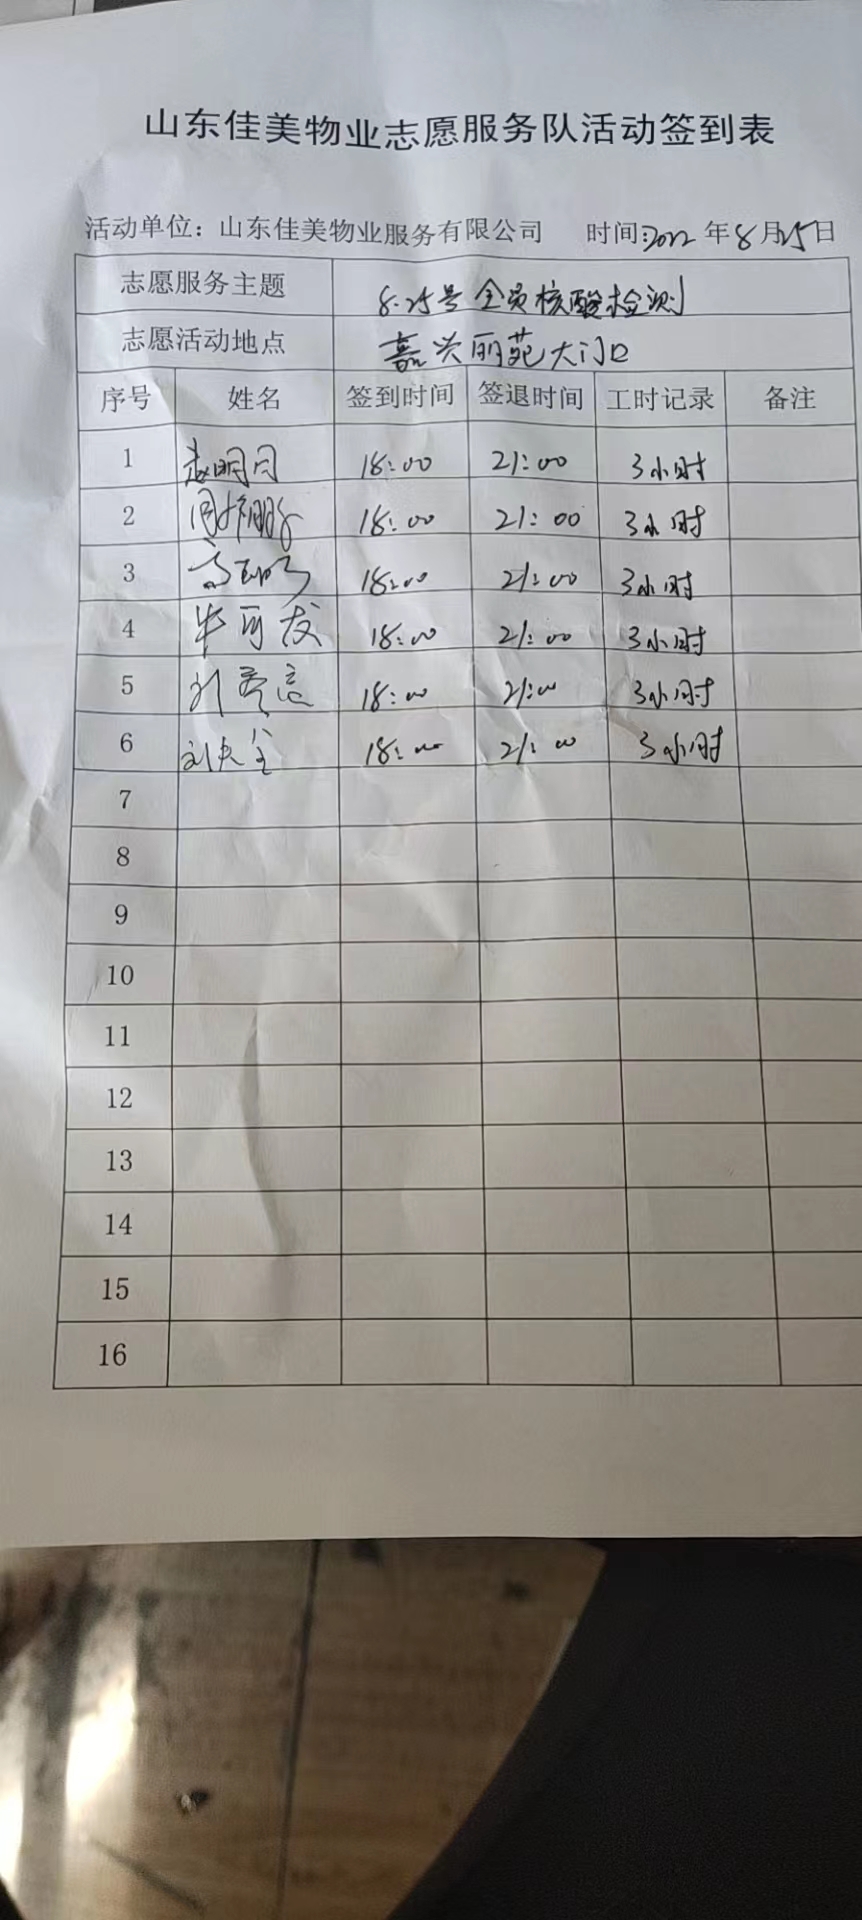 山东佳美物业志愿服务队活动签到表
活动单位：山东佳美物业服务有限公司 时间：2022年8月25日
志愿服务主题 8.25号全员核酸检测
志愿活动地点 嘉兴丽苑大门口
序号 姓名 签到时间 签退时间 工时记录 备注
1 18:00 21:00 3小时
2 18:00 21:00 3小时
3 18:00 21:00 3小时
4 18:00 21:00 3小时
5 18:00 21:00 3小时
6 18:00 21:00 3小时
7
8
9
10
11
12
13
14
15
16